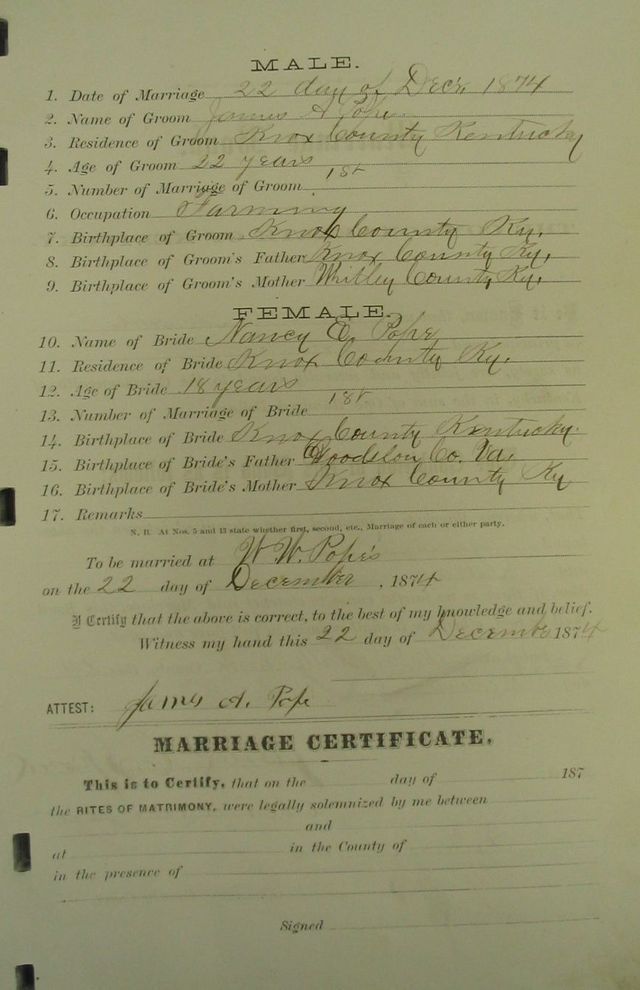 MALE.
1. Date of Marriage 22 day of Decr, 1874
2. Name of Groom James A Pope
3. Residence of Groom Knox County Kentucky
4. Age of Groom 22 years
5. Number of Marriage of Groom 1st
6. Occupation Farming
7. Birthplace of Groom Knox County Ky,
8. Birthplace of Groom's Father Knox County Ky,
9. Birthplace of Groom's Mother Whitley County, Ky,
FEMALE.
10. Name of Bride Nancy E, Pope
11. Residence of Bride Knox County Ky.
12. Age of Bride 18 years
13. Number of Marriage of Bride 1st
14. Birthplace of Bride Knox County Kentucky.
15. Birthplace of Bride's Father Co. Va.
16. Birthplace of Bride's Mother Knox County Ky
17. Remarks
N. B. At Nos. 5 and 13 state whether first, second, etc., Marriage of each or either party.
To be married at W W. Pope's
on the 22 day of December, 1874
I Certify that the above is correct, to the best of my knowledge and belief.
Witness my hand this 22 day of December 1874
ATTEST: James A. Pope
MARRIAGE CERTIFICATE.
This is to Certify, that on the day of 187
the RITES OF MATRIMONY, were legally solemnized by me between
and
at in the County of
in the presence of
Signed